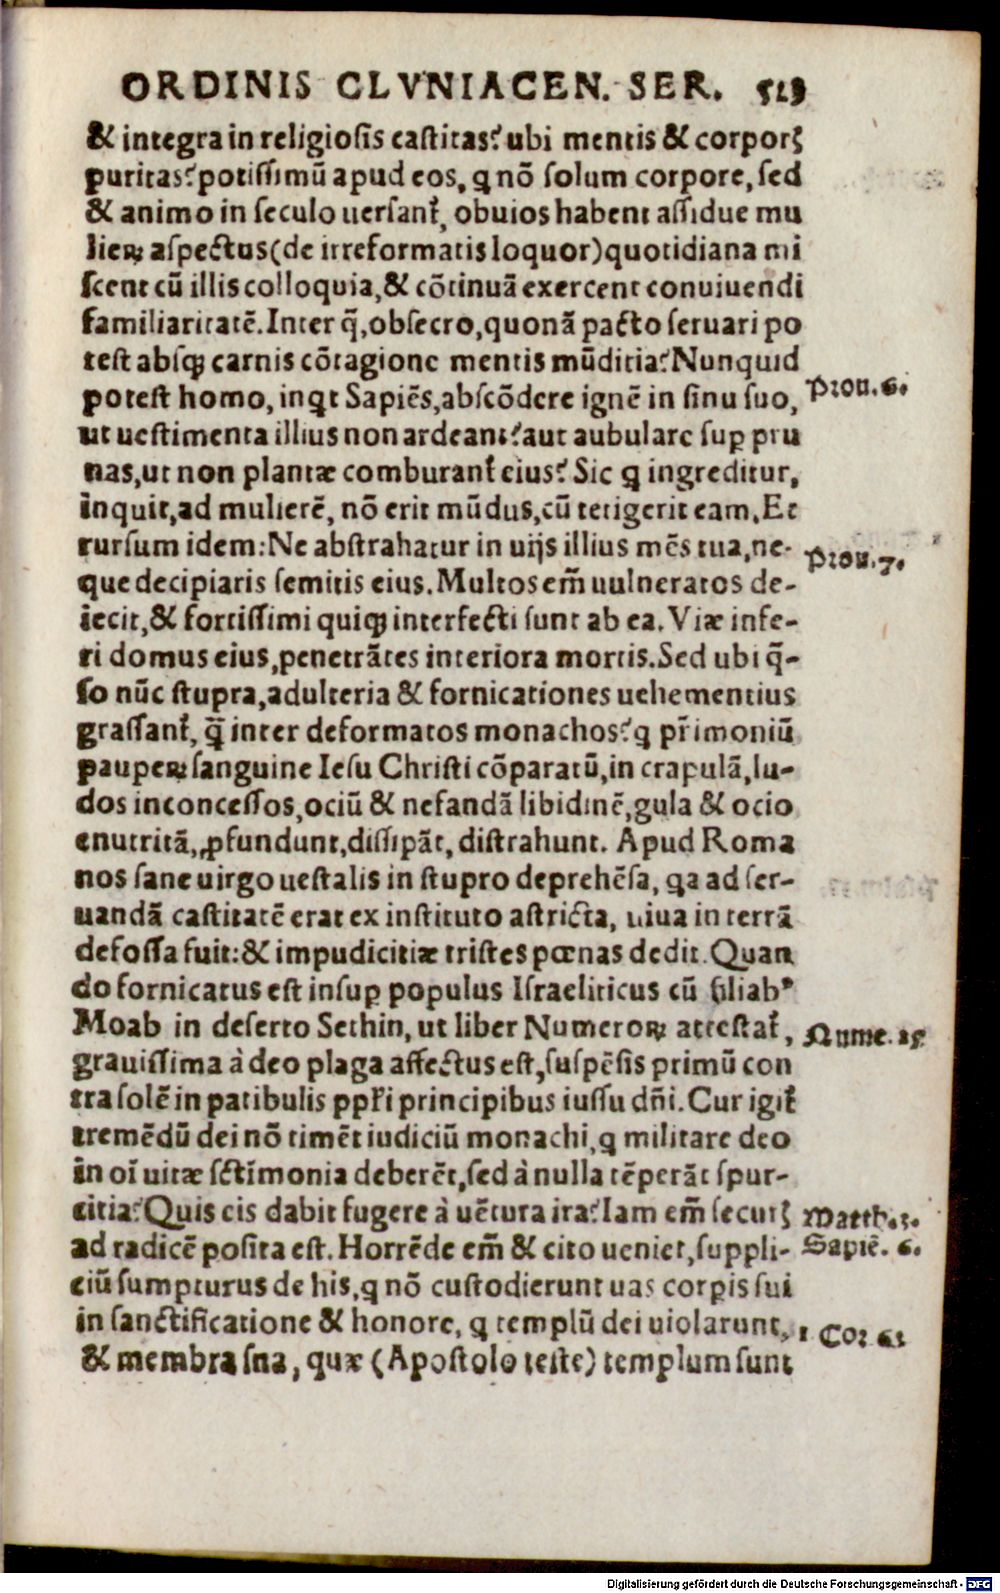 ORDINIS CLVNIACEN. SER. 513
& integra in religiosis castitas? ubi mentis & corporꝭ
puritas? potissimũ apud eos, q nõ solum corpore, sed
& animo in seculo uersanť, obuios habent assidue mu
lieꝝ aspectus (de irreformatis loquor) quotidiana mi
scent cũ illis colloquia, & cõtinuã exercent conuiuendi
familiaritatẽ. Inter q̃, obsecro, quonã pacto seruari po
test absqꝫ carnis cõtagione mentis mũditia? Nunquid
potest homo, inqt Sapiẽs, abscõdere ignẽ in sinu suo,
Prou. 6.
ut uestimenta illius non ardeant? aut aubulare suꝑ pru
nas, ut non plantæ comburanť eius? Sic q ingreditur,
inquit, ad mulierẽ, nõ erit mũdus, cũ tetigerit eam. Et
rursum idem: Ne abstrahatur in uijs illius mẽs tua, ne-
Prou. 7.
que decipiaris semitis eius. Multos em̃ uulneratos de-
iecit, & fortissimi quiqꝫ interfecti sunt ab ea. Viæ infe-
ri domus eius, penetrãtes interiora mortis. Sed ubi q̃-
so nũc stupra, adulteria & fornicationes uehementius
grassanť, q̃ inter deformatos monachos? q pr̃imoniũ
pauꝑeꝝ sanguine Iesu Christi cõparatũ, in crapulã, lu-
dos inconcessos, ociũ & nefandã libidinẽ, gula & ocio
enutritã, ꝓfundunt, dissipãt, distrahunt. Apud Roma
nos sane uirgo uestalis in stupro deprehẽsa, qa ad ser-
uandã castitatẽ erat ex instituto astricta, uiua in terrã
defossa fuit: & impudicitiæ tristes pœnas dedit. Quan
do fornicatus est insuꝑ populus Israeliticus cũ filiabꝰ
Moab in deserto Sethin, ut liber Numeroꝝ attestať,
Nume. 25
grauissima à deo plaga affectus est, suspẽsis primũ con
tra solẽ in patibulis ppři principibus iussu dñi. Cur igiť
tremẽdũ dei nõ timẽt iudiciũ monachi, q militare deo
in oĩ uitæ sctĩmonia deberẽt, sed à nulla tẽperãt spur-
citia? Quis eis dabit fugere à uẽtura ira? Iam em̃ securꝭ
Matth. 3.
ad radicẽ posita est. Horrẽde em̃ & cito ueniet, suppli-
Sapiẽ. 6.
ciũ sumpturus de his, q nõ custodierunt uas corꝑis sui
in sanctificatione & honore, q templũ dei uiolarunt,
1 Cor 6.
& membra sna, quæ (Apostolo teste) templum sunt
Digitalisierung gefördert durch die Deutsche Forschungsgemeinschaft - DFG